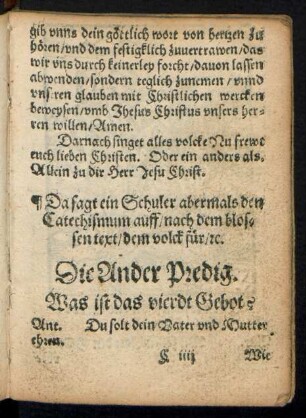 gib vnns dein göttlich wort von hertzen zu
hören/vnd dem festigklich zuuertrawen/das
wir vns durch keinerley forcht/dauon lassen
abwenden/sondern teglich zunemen/vnnd
vnsren glauben mit Christlichen wercken
beweysen/vmb Jhesus Christus vnsers her-
ren willen/Amen.
Darnach singet alles volck: Nu frewt
euch lieben Christen. Oder ein anders als.
Allein zu dir Herr Jesu Christ.
¶ Da sagt ein Schuler abermals den
Catechismum auff/nach dem blos-
sen text/dem volck für/ꝛc.
Die Ander Predig.
Was ist das vierdt Gebot?
Ant. Du solt dein Vater vnd Mutter
ehren.
C iiij Wie